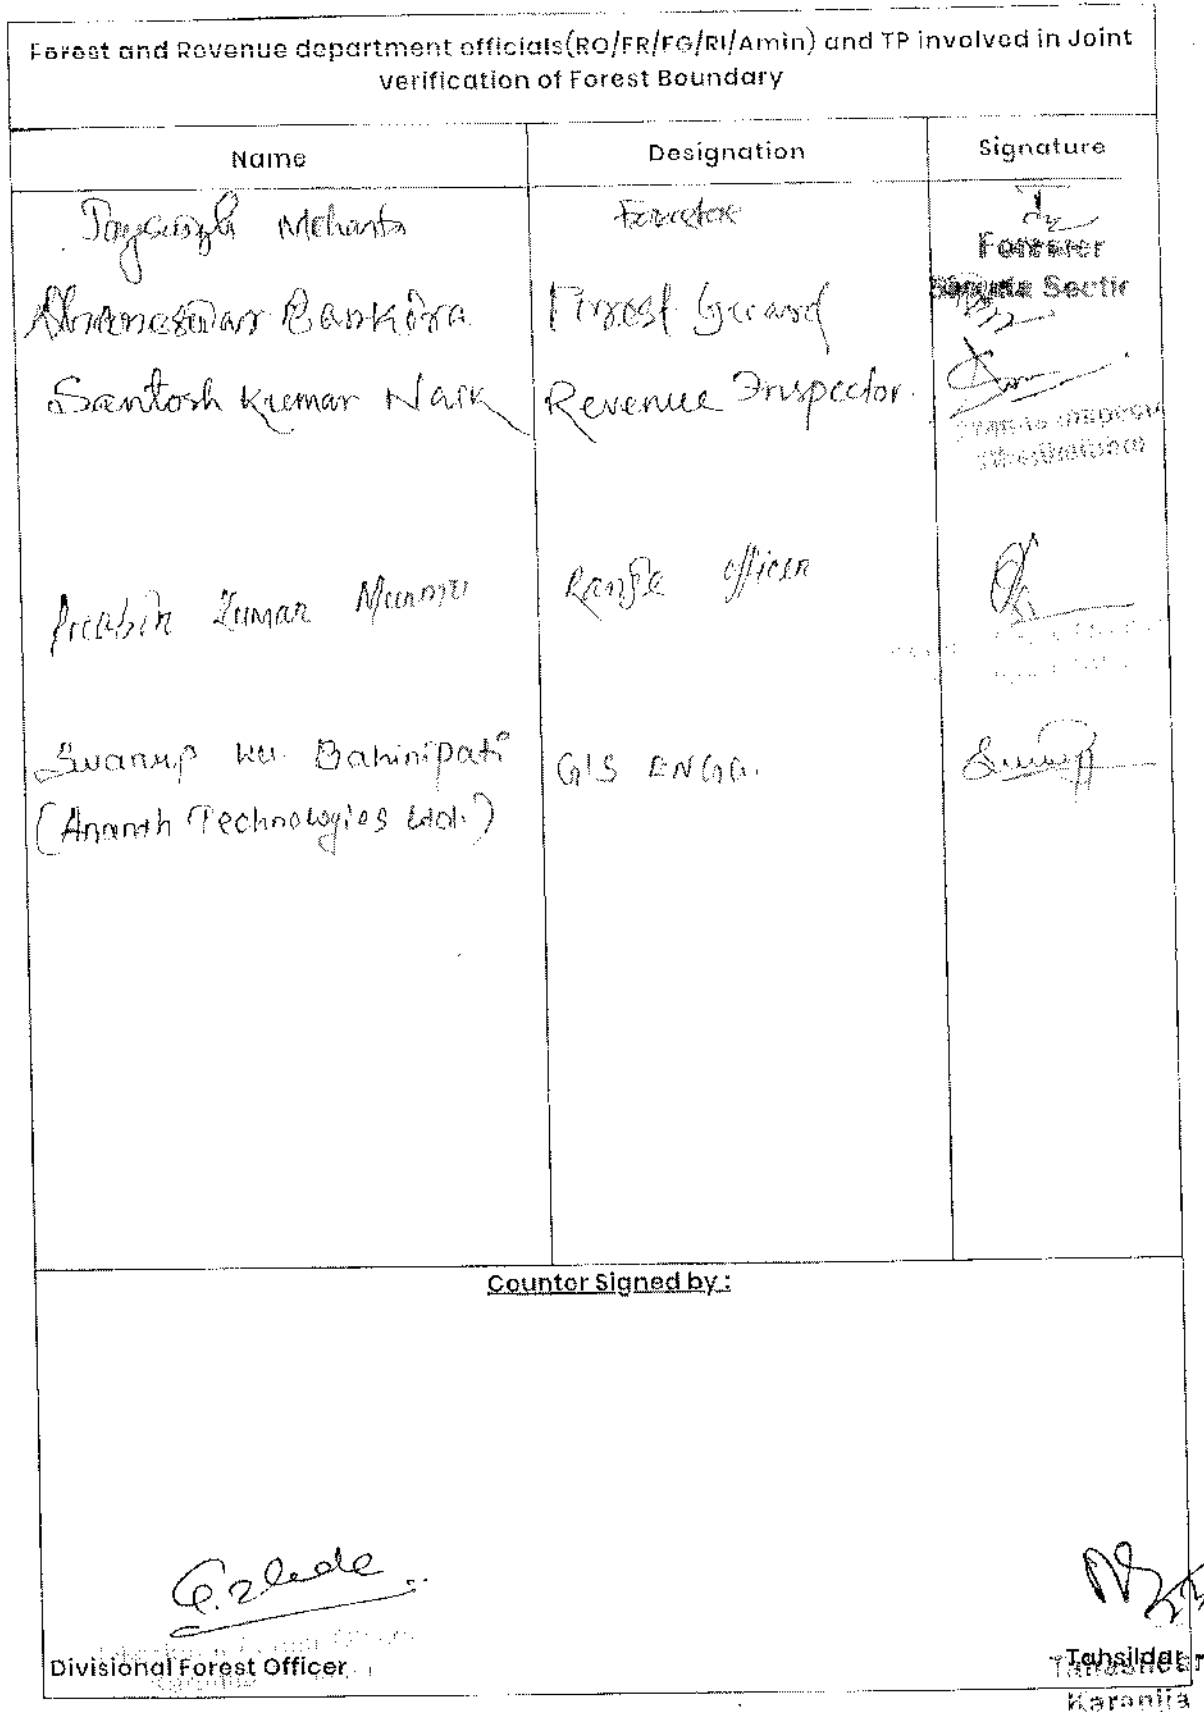 Forest and Revenue department officials(RO/FR/FG/RI/Amin) and TP involved in Joint
verification of Forest Boundary
Name Designation Signature
Mohanta Forester
Forester
Dhaneswar Bankira Forest Guard
Sectio
Santosh Kumar Naik Revenue Inspector.
Prabin Kumar Murmu Range officer
Swarup ku. Bahinipati GIS ENGG.
(Ananth Technologies Ltd.)
Counter Signed by :
Divisional Forest Officer
Tahsildar
Tahasildar
Karanjia